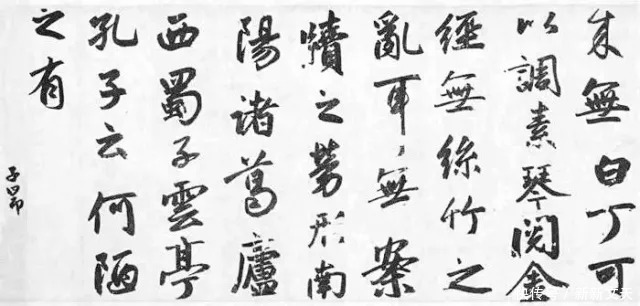 来無白丁可
以調素琴閱金
經無絲竹之
亂耳無案
牘之勞形南
陽諸葛廬
西蜀子雲亭
孔子云何陋
之有
子昂